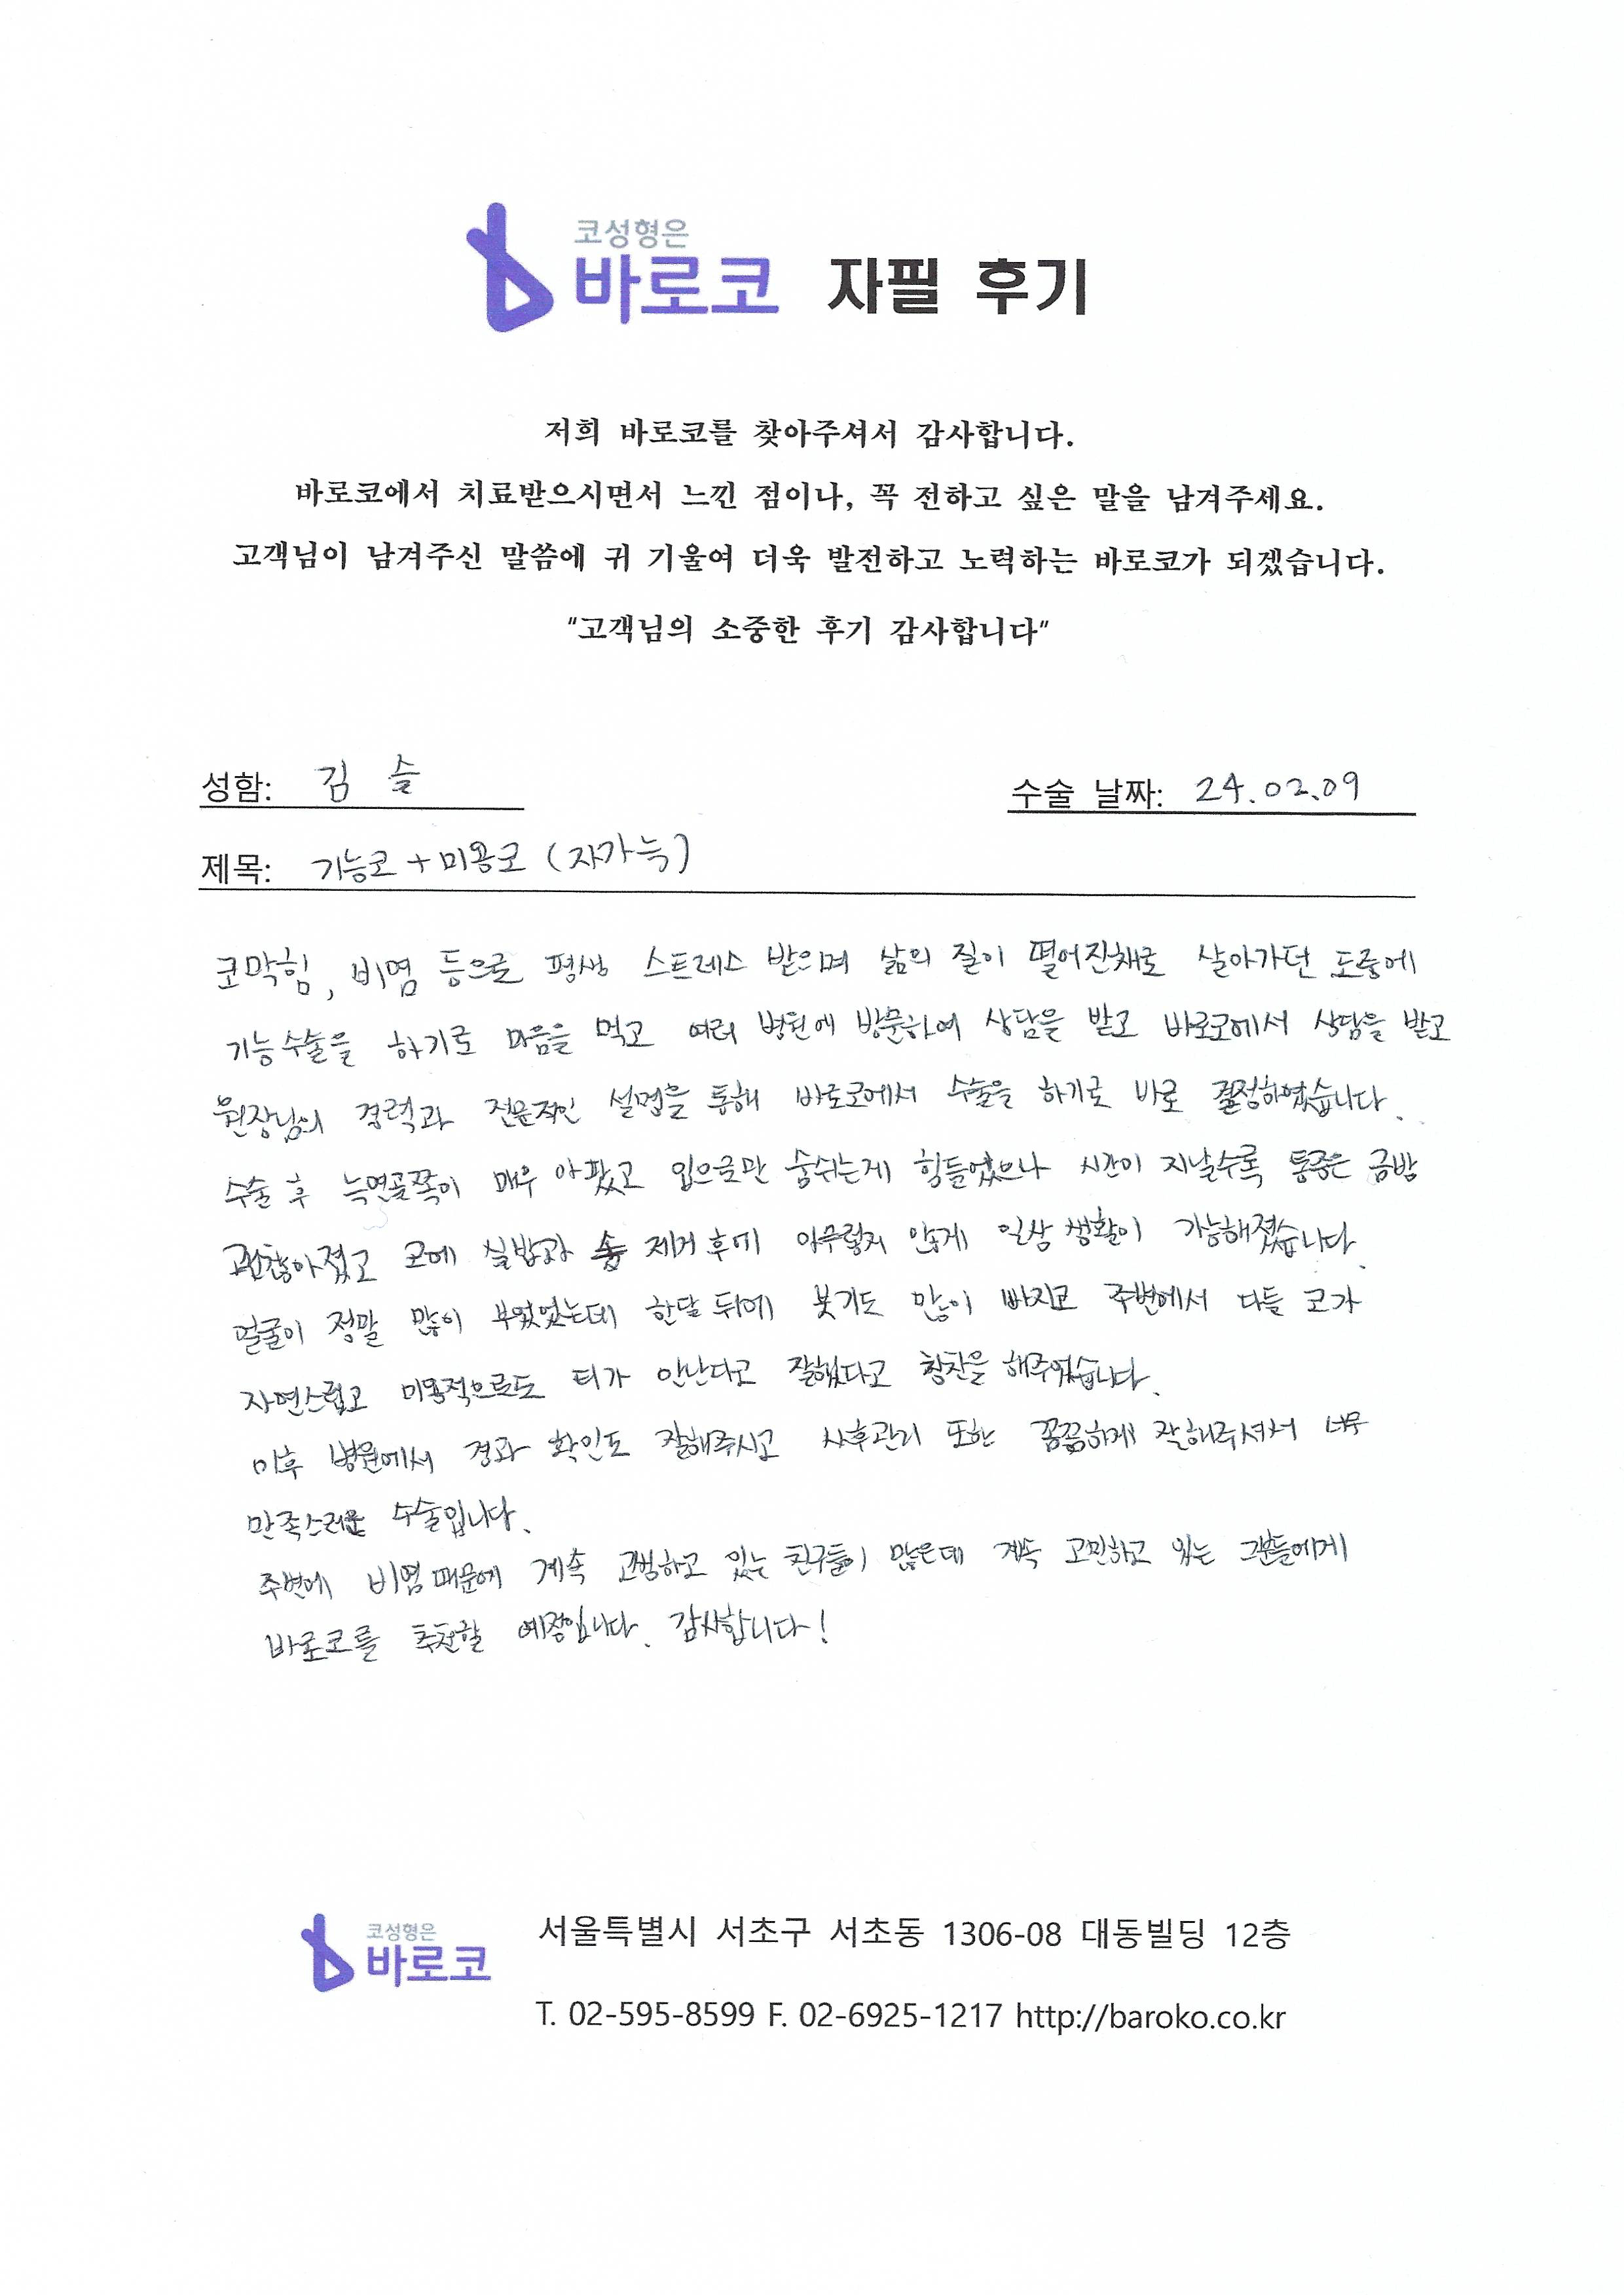 코성형은
바로코 자필 후기
저희 바로코를 찾아주셔서 감사합니다.
바로코에서 치료받으시면서 느낀 점이나, 꼭 전하고 싶은 말을 남겨주세요.
고객님이 남겨주신 말씀에 귀 기울여 더욱 발전하고 노력하는 바로코가 되겠습니다.
"고객님의 소중한 후기 감사합니다"
성함: 김 슬 수술 날짜: 24.02.09
제목: 기능코 + 미용코 (자가늑)
코막힘, 비염 등으로 평생 스트레스 받으며 삶의 질이 떨어진채로 살아가던 도중에
기능수술을 하기로 마음을 먹고 여러 병원에 방문하여 상담을 받고 바로코에서 상담을 받고
원장님의 경력과 전문적인 설명을 통해 바로코에서 수술을 하기로 바로 결정하였습니다.
수술 후 늑연골쪽이 매우 아팠고 입으로만 숨쉬는게 힘들었으나 시간이 지날수록 통증은 금방
괜찮아졌고 코에 실밥과 솜 제거 후에 아무렇지 않게 일상 생활이 가능해졌습니다.
얼굴이 정말 많이 부었었는데 한달 뒤에 붓기도 많이 빠지고 주변에서 다들 코가
자연스럽고 미용적으로도 티가 안난다고 잘했다고 칭찬을 해주었습니다.
이후 병원에서 경과 확인도 잘해주시고 사후관리 또한 꼼꼼하게 잘해주셔서 너무
만족스러운 수술입니다.
주변에 비염때문에 계속 고생하고 있는 친구들이 많은데 계속 고민하고 있는 그분들에게
바로코를 추천할 예정입니다. 감사합니다!
코성형은
바로코
서울특별시 서초구 서초동 1306-08 대동빌딩 12층
T. 02-595-8599 F. 02-6925-1217 http://baroko.co.kr